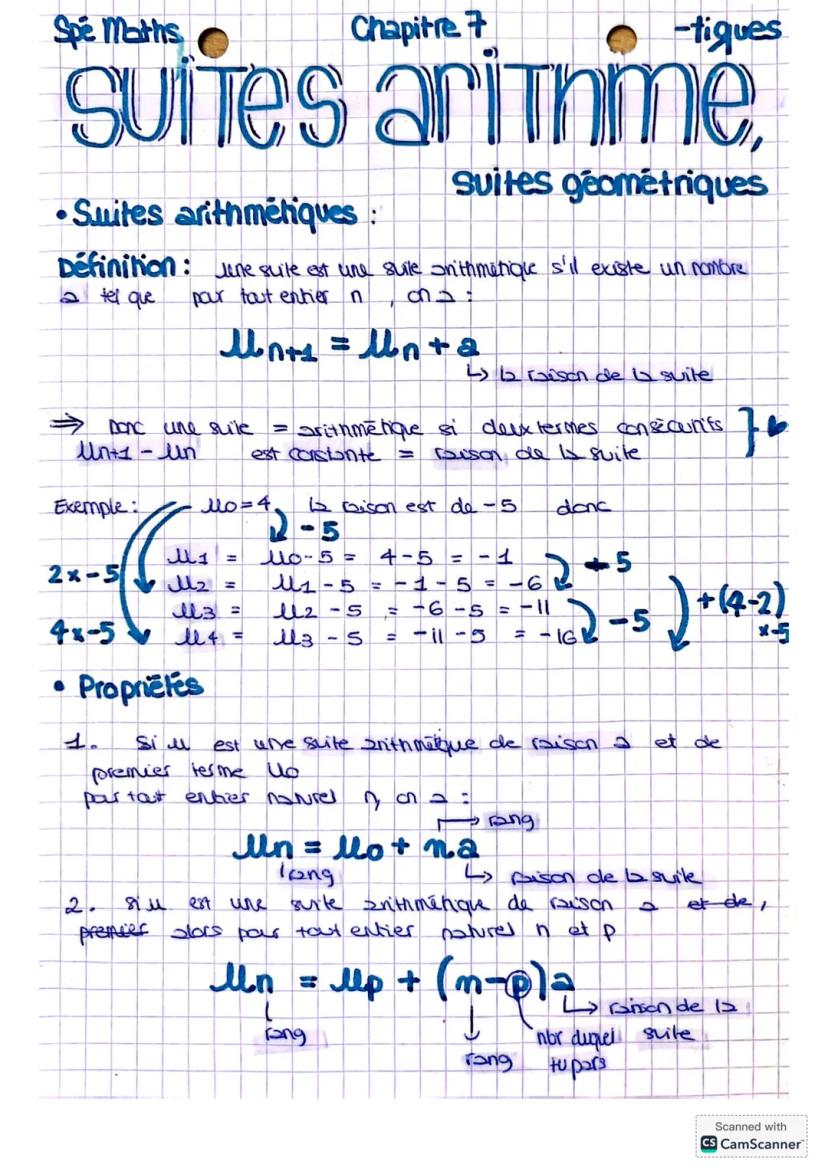 Spé Maths Chapitre 7 -tiques
suites arithmé,
suites géométriques
• Suites arithmétiques :
Définition : une suite est une suite arithmétique s'il existe un nombre
a tel que par tout entier n , on a :
Un+1 = Un + a
↳ la raison de la suite
⇒ Donc une suite = arithmétique si deux termes consécutifs
Un+1 - Un est constante = raison de la suite
Exemple : U0 = 4, la raison est de -5 donc
-5
U1 = U0 - 5 = 4 - 5 = -1
2x-5 U2 = U1 - 5 = -1 - 5 = -6 -5
U3 = U2 - 5 = -6 - 5 = -11 +(4-2)
4x-5 U4 = U3 - 5 = -11 - 5 = -16 -5 x-5
• Propriétés
1. Si u est une suite arithmétique de raison a et de
premier terme U0
pour tout entier naturel n, on a :
→ rang
Un = U0 + na
rang ↳ raison de la suite
2. si u est une suite arithmétique de raison a et de,
premier alors pour tout entier naturel n et p
Un = Up + (n-p)a
↳ raison de la
rang nbr duquel suite
rang tu pars
Scanned with
CS CamScanner